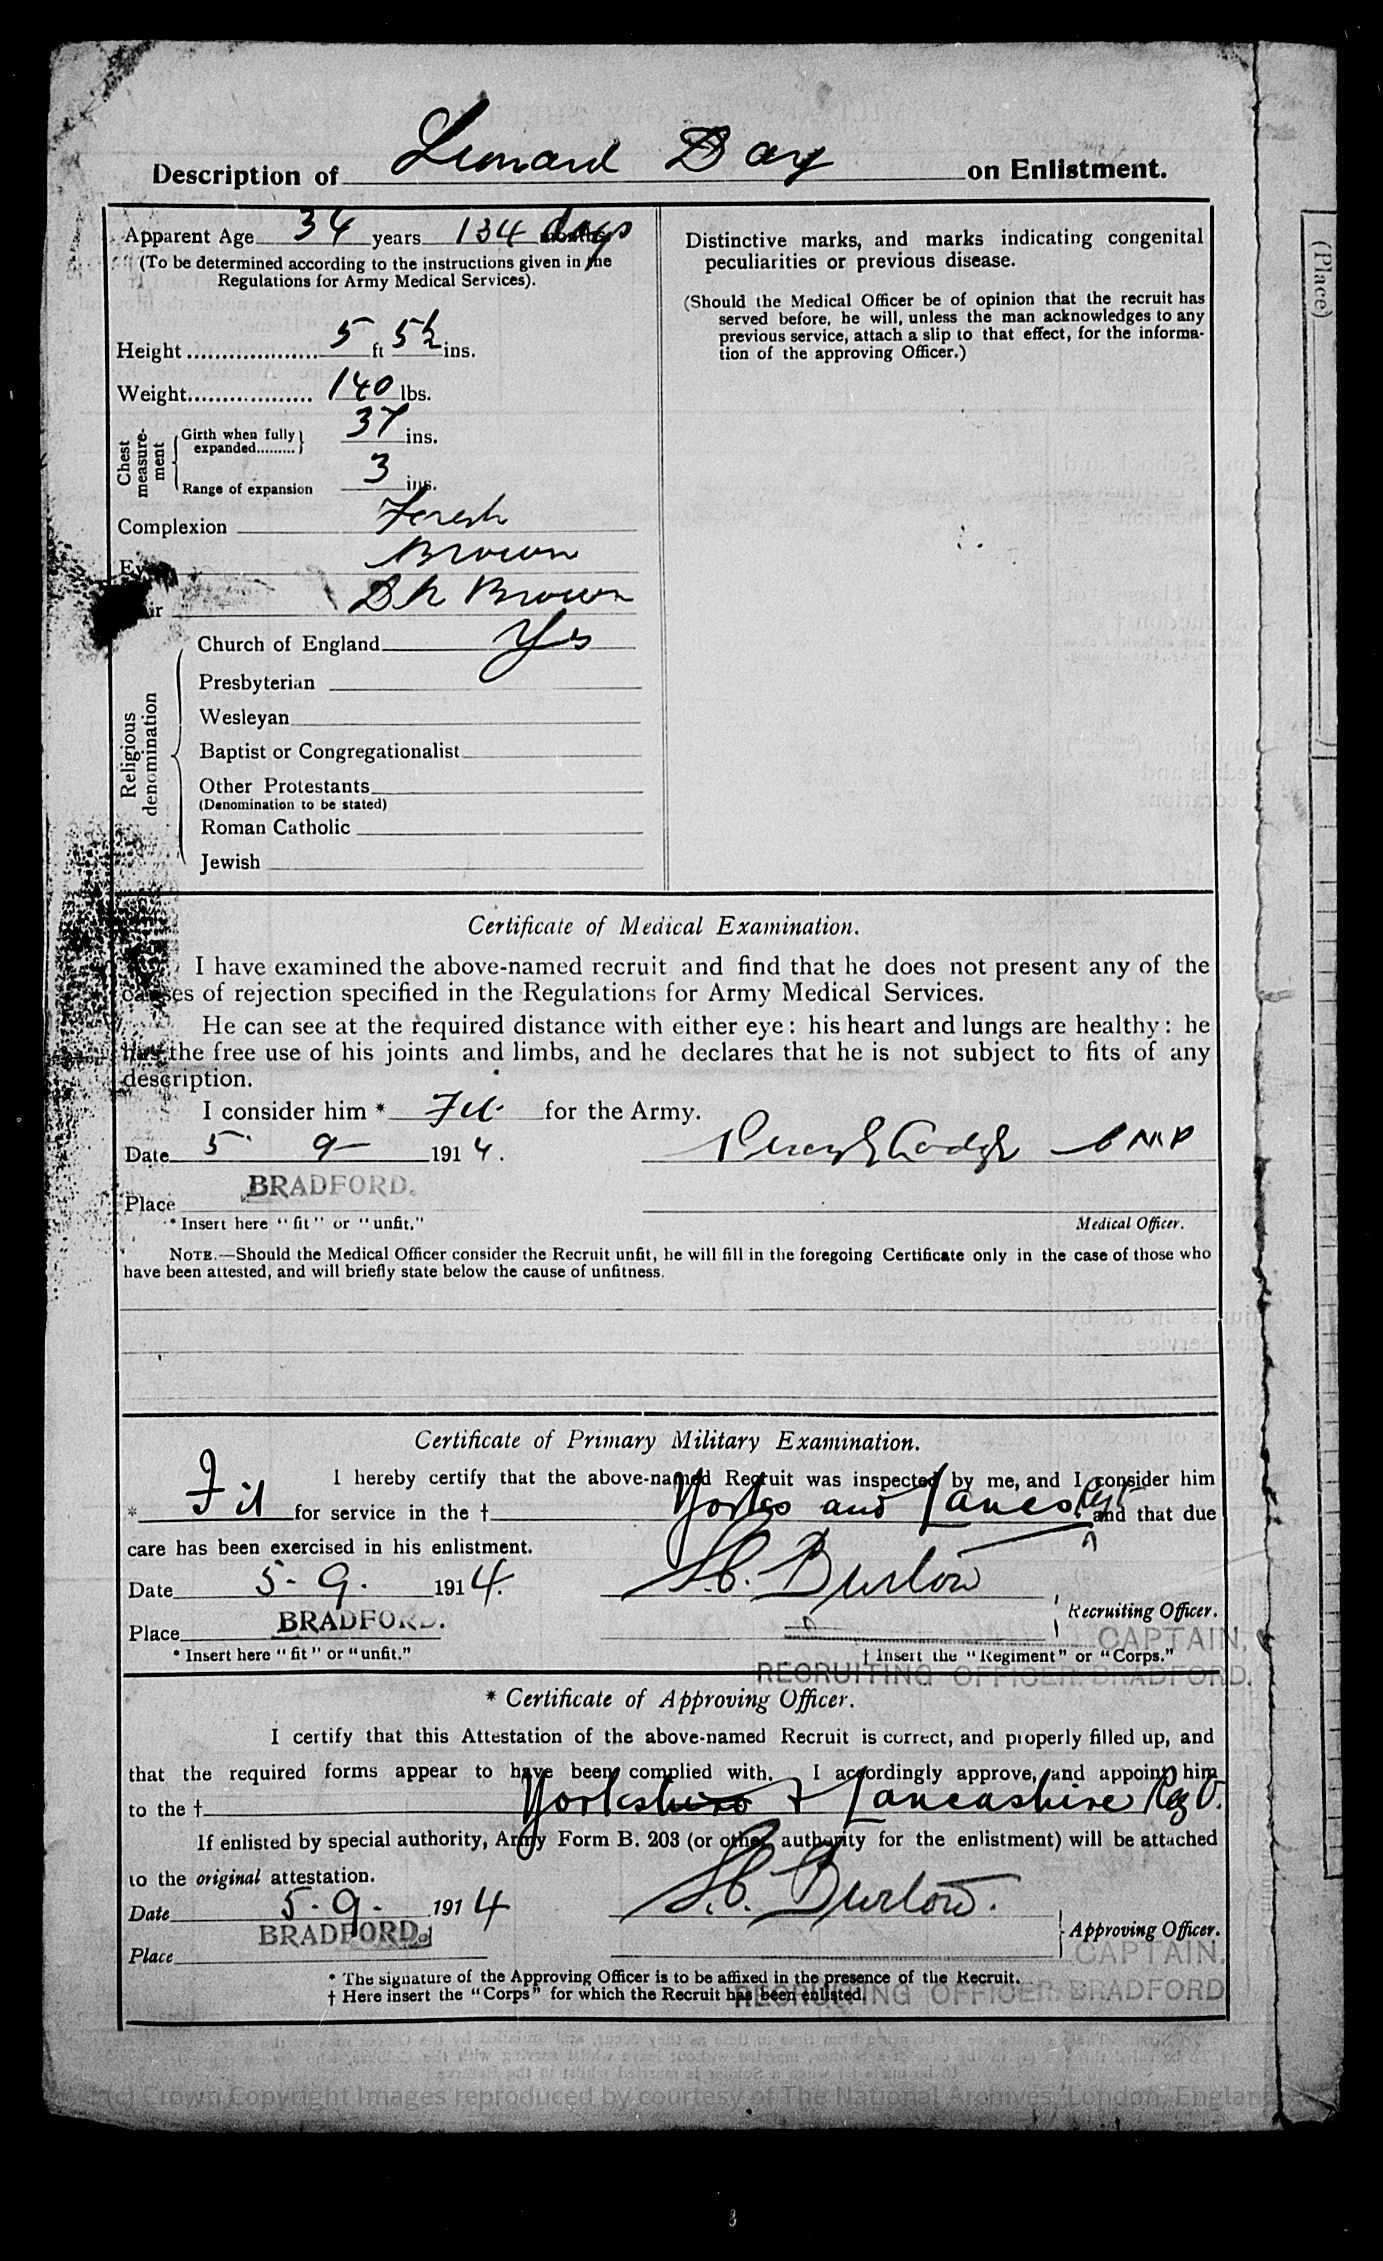 Description of Leonard Day on Enlistment.
Apparent Age 34 years 134 days
(To be determined according to the instructions given in the
Regulations for Army Medical Services).
Height ................... 5 ft 5½ ins.
Weight.................. 140 lbs.
Chest measure-ment
Girth when fully expanded......... 37 ins.
Range of expansion 3 ins.
Complexion Fresh
Eyes Brown
Hair Dk Brown
Religious denomination
Church of England Yes
Presbyterian
Wesleyan
Baptist or Congregationalist
Other Protestants
(Denomination to be stated)
Roman Catholic
Jewish
Distinctive marks, and marks indicating congenital
peculiarities or previous disease.
(Should the Medical Officer be of opinion that the recruit has
served before, he will, unless the man acknowledges to any
previous service, attach a slip to that effect, for the informa-
tion of the approving Officer.)
(Place)
Certificate of Medical Examination.
I have examined the above-named recruit and find that he does not present any of the
causes of rejection specified in the Regulations for Army Medical Services.
He can see at the required distance with either eye: his heart and lungs are healthy: he
has the free use of his joints and limbs, and he declares that he is not subject to fits of any
description.
I consider him * Fit for the Army.
Date 5. 9 1914.
Place BRADFORD.
* Insert here "fit" or "unfit."
Medical Officer.
NOTE.—Should the Medical Officer consider the Recruit unfit, he will fill in the foregoing Certificate only in the case of those who
have been attested, and will briefly state below the cause of unfitness.
Certificate of Primary Military Examination.
I hereby certify that the above-named Recruit was inspected by me, and I consider him
* Fit for service in the † Yorks and Lancs Regt and that due
care has been exercised in his enlistment.
Date 5. 9. 1914. Burlow
Recruiting Officer.
Place BRADFORD.
CAPTAIN,
* Insert here "fit" or "unfit." † Insert the "Regiment" or "Corps."
RECRUITING OFFICER. BRADFORD.
* Certificate of Approving Officer.
I certify that this Attestation of the above-named Recruit is correct, and properly filled up, and
that the required forms appear to have been complied with. I accordingly approve, and appoint him
to the † Yorkshire & Lancashire Regt.
If enlisted by special authority, Army Form B. 203 (or other authority for the enlistment) will be attached
to the original attestation.
Date 5. 9. 1914 Burlow.
BRADFORD.
Approving Officer.
Place
CAPTAIN.
* The signature of the Approving Officer is to be affixed in the presence of the Recruit.
† Here insert the "Corps" for which the Recruit has been enlisted.
RECRUITING OFFICER. BRADFORD
(c) Crown Copyright Images reproduced by courtesy of The National Archives, London, England
3